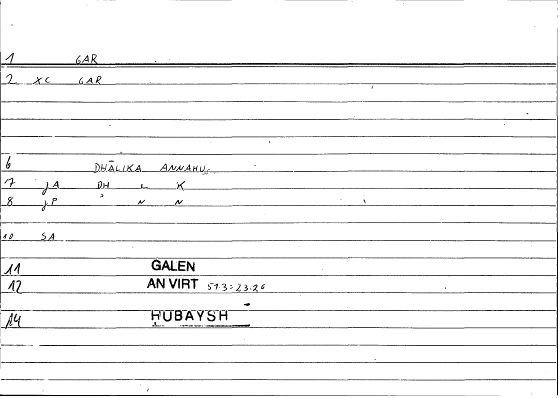 1 GAR
2 XC GAR
6 DHĀLIKA ANNAHU
7 JA DH L K
8 JP N N
10 SA
11 GALEN
12 AN VIRT 513:23.26
14 HUBAYSH